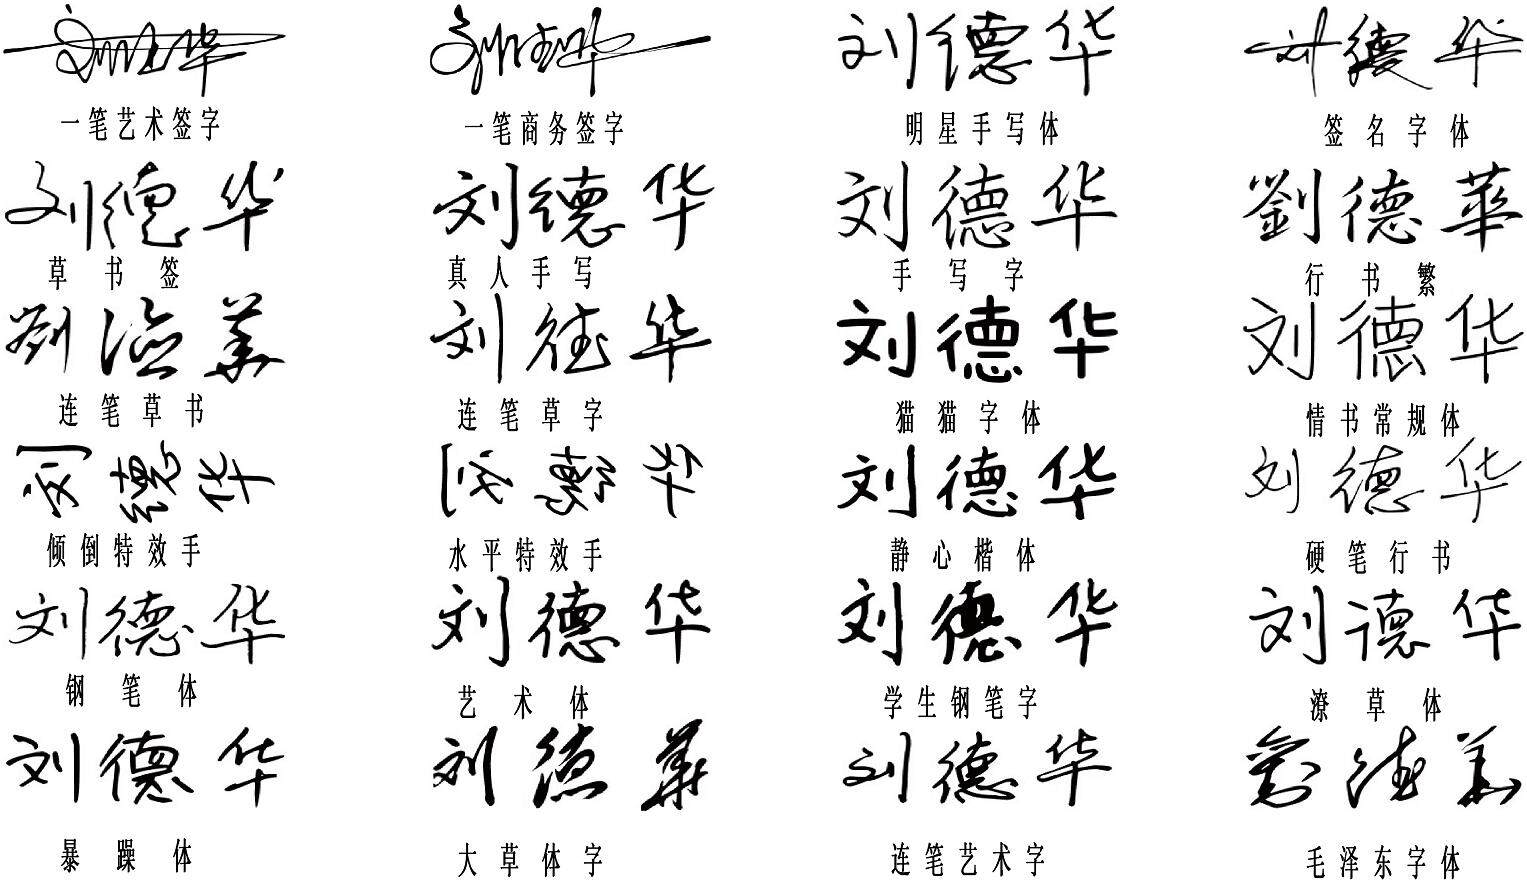 刘德华 刘德华 刘德华 刘德华
一笔艺术签字 一笔商务签字 明星手写体 签名字体
刘德华 刘德华 刘德华 劉德華
草书签 真人手写 手写字 行书繁
劉德華 刘德华 刘德华 刘德华
连笔草书 连笔草字 猫猫字体 情书常规体
刘德华 刘德华 刘德华 刘德华
倾倒特效手 水平特效手 静心楷体 硬笔行书
刘德华 刘德华 刘德华 刘德华
钢笔体 艺术体 学生钢笔字 潦草体
刘德华 刘德華 刘德华 劉德華
暴躁体 大草体字 连笔艺术字 毛泽东字体